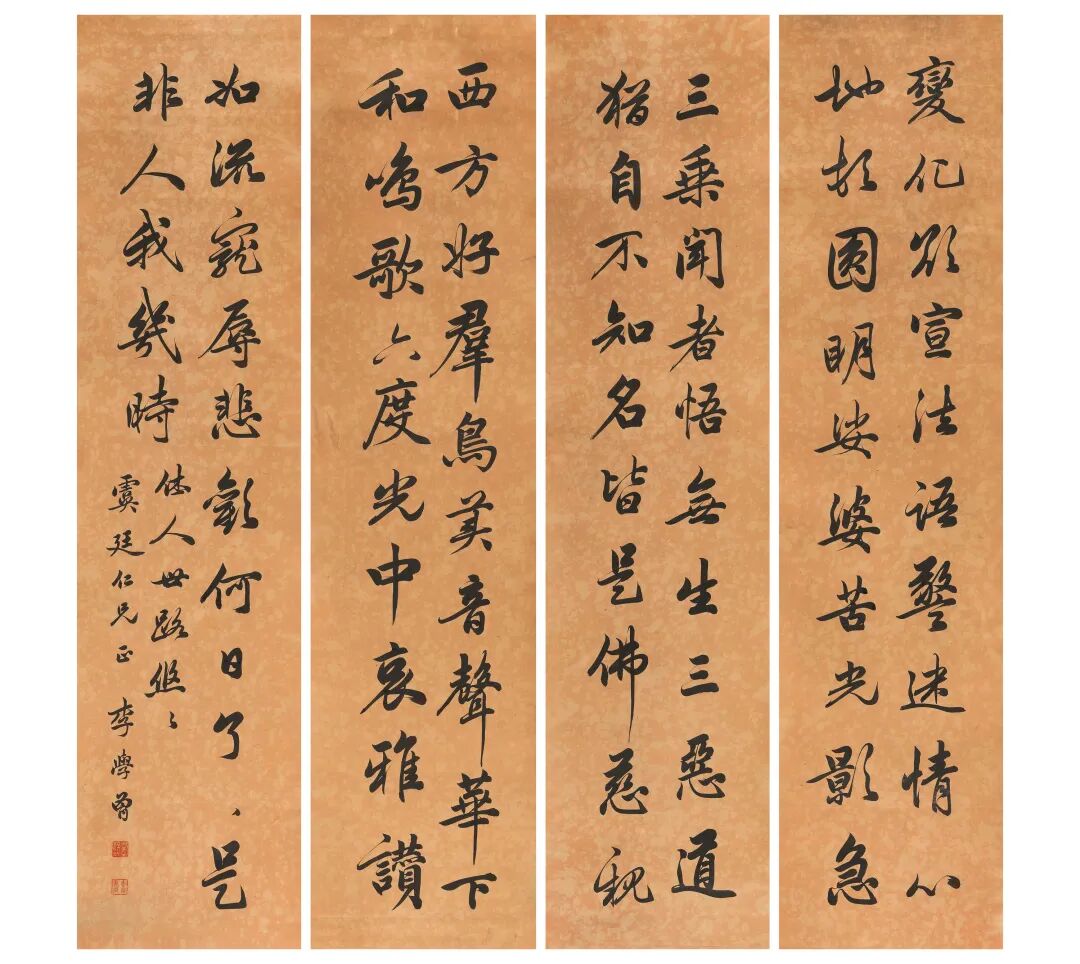 變化欲宣法語警迷情心
地頓圓明娑婆苦光影急
三乘聞者悟無生三惡道
猶自不知名皆是佛慈親
西方好羣鳥美音聲華下
和鳴歌六度光中哀雅讚
如流寵辱悲歡何日了、是
非人我幾時
休人世路悠〻
虞廷仁兄正 李學曾